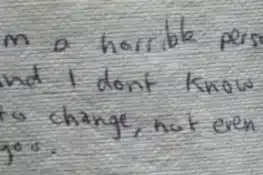 m a horrible perso
nd I dont know
to change, not even